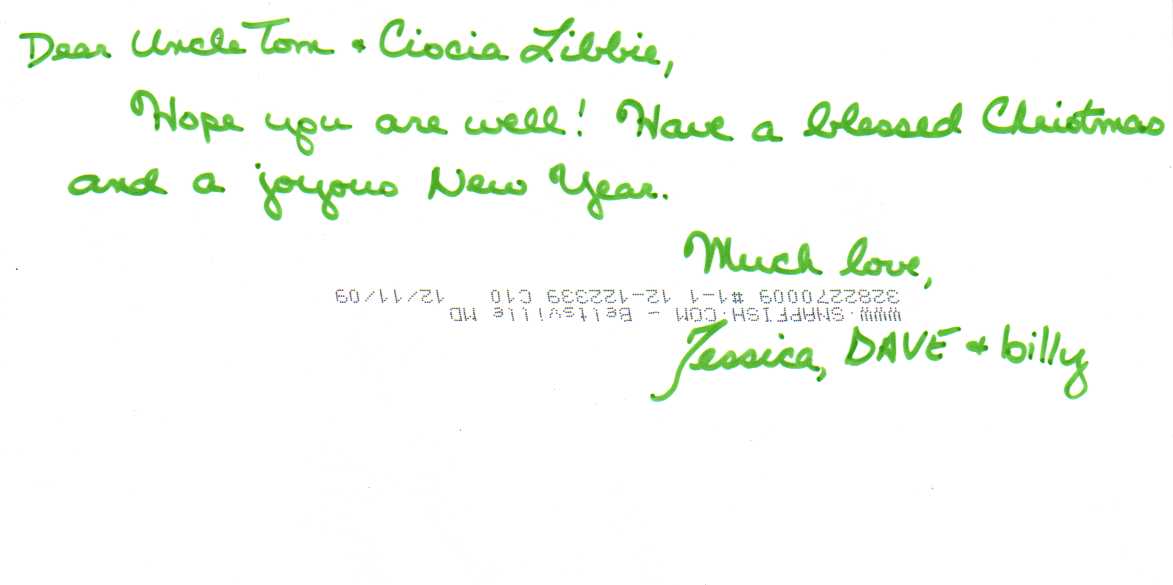 Dear Uncle Tom & Ciocia Libbie,
Hope you are well! Have a blessed Christmas
and a joyous New Year.
Much love,
Jessica, DAVE & billy
WWW.SNAPFISH.COM - Beltsville MD
3282270009 #1-1 12-122339 C10 12/11/09